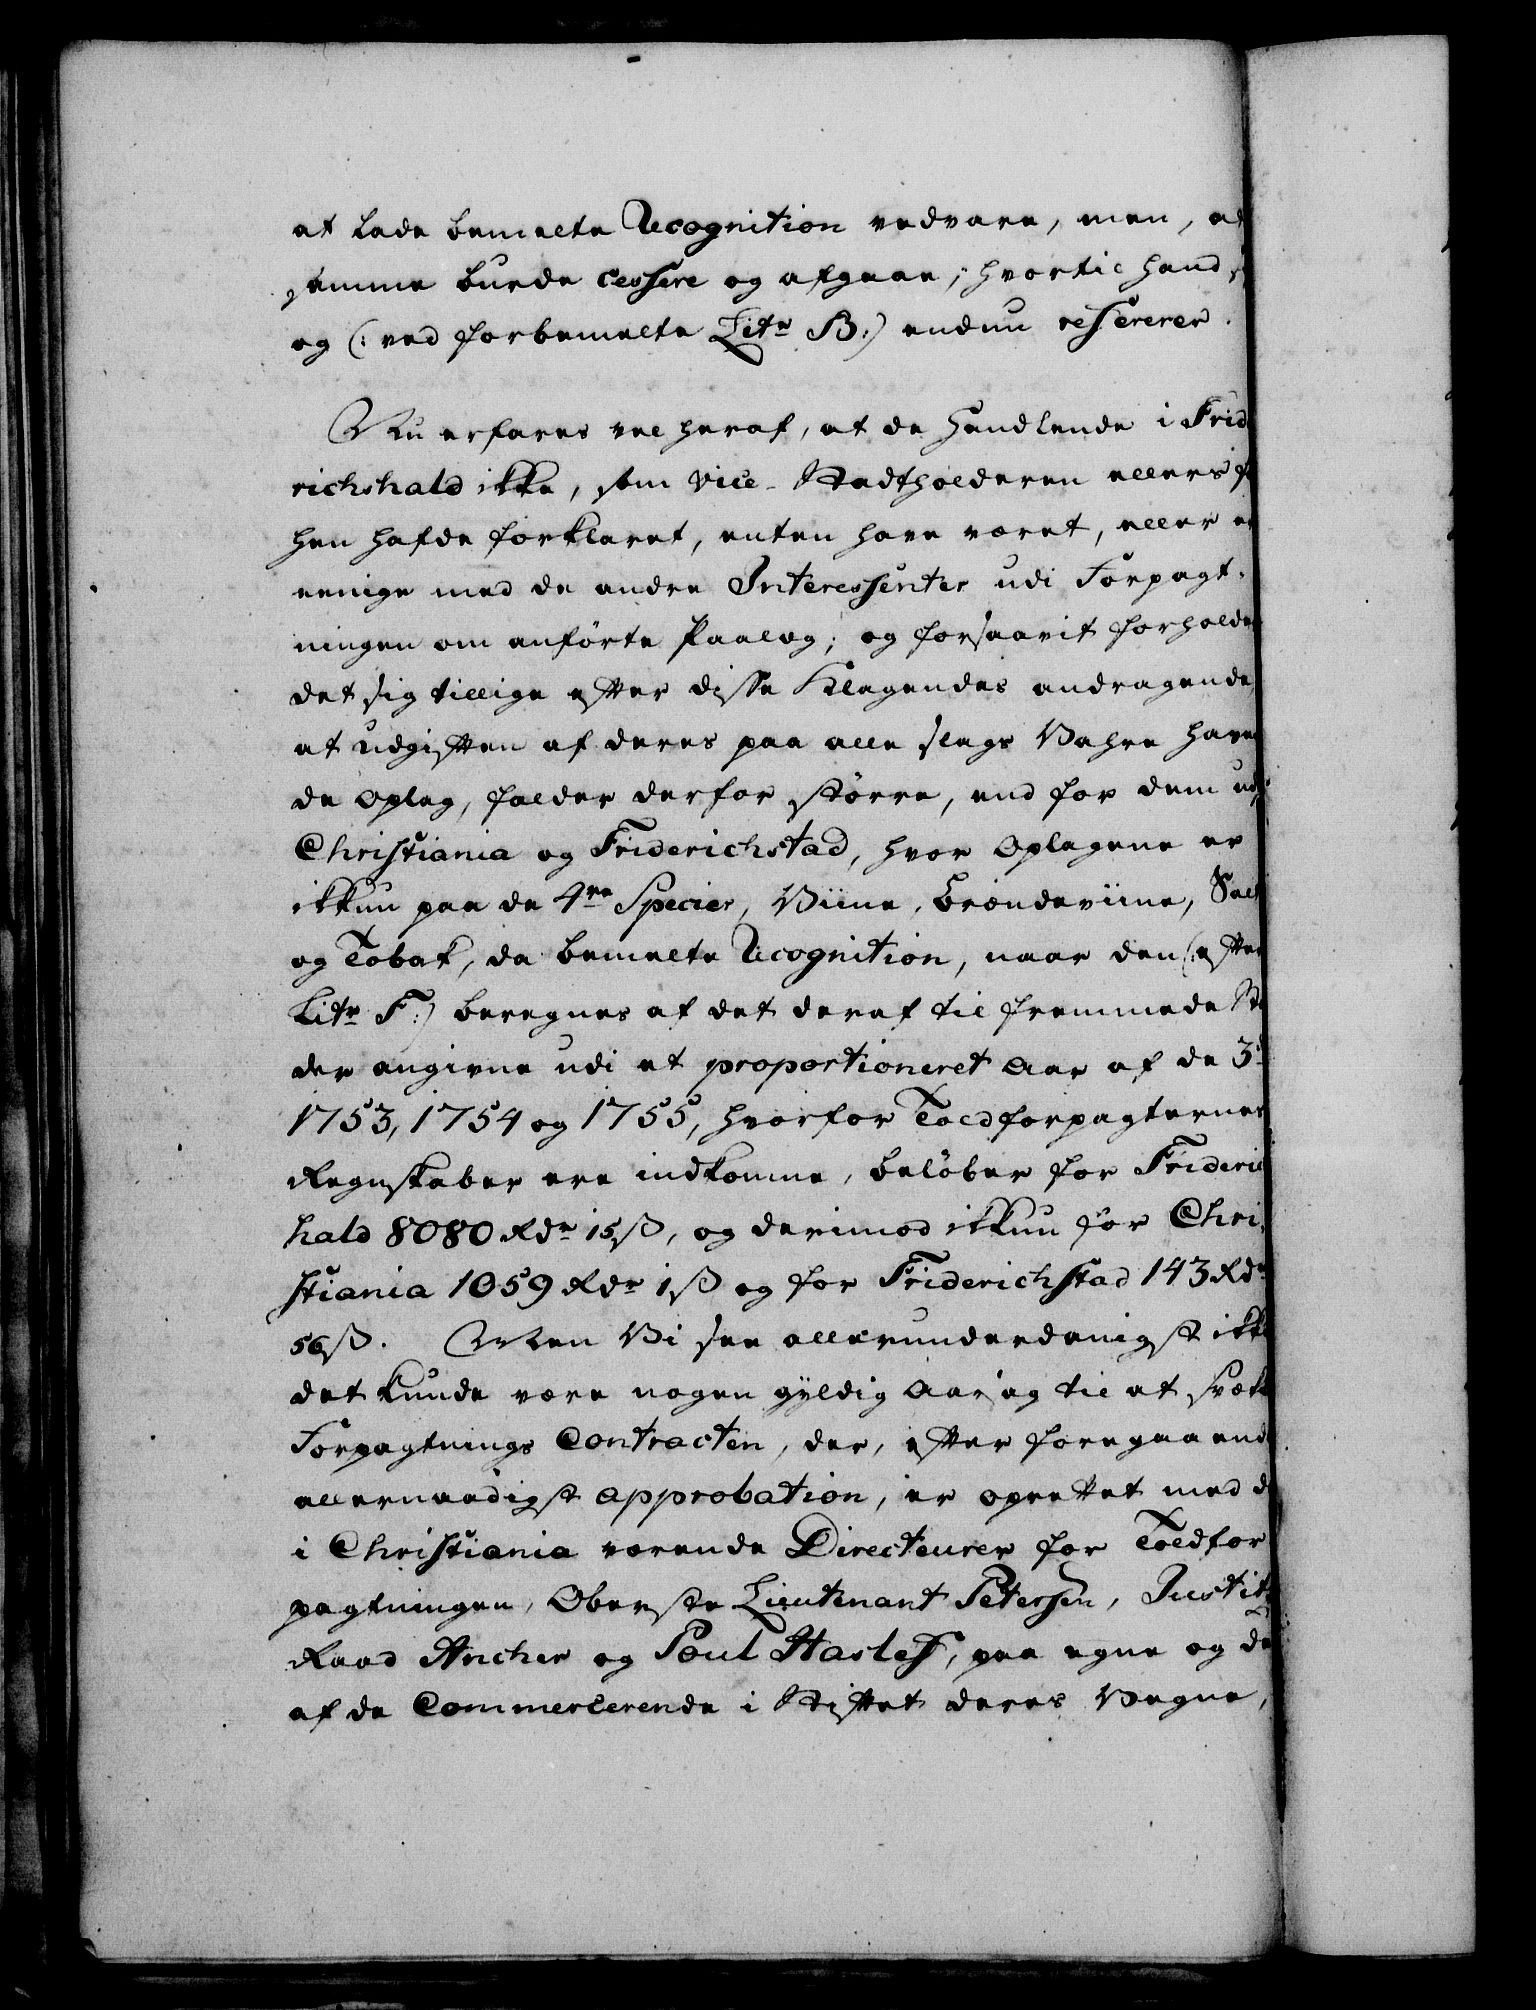 at lade bemelte Recognition vedvare, men, at
samme burde cessere og afgaae; hvortil hand
og (: ved forbemelte Litr B:) endnu refererer.
Nu erfares vel heraf, at de Handlende i Frid
richshald ikke, som Vice-Stadtholderen ellers
hen hafde forklaret, enten have været, eller
eenige med de andre Interessenter udi Forpagt-
ningen om anförte Paalæg; og forsaavit forholder
det sig tillige efter disse Klagendes andragende,
at udgiften af deres paa alle slags Vahre haven
de Oplag, falder derfor större, end for dem udi
Christiania og Friderichstad, hvor Oplagene er
ikkun paa de 4re Species, Viine, Brændeviine, Salt
og Tobak, da bemelte Recognition, naar den (: efter
Litr F:) beregnes af det deraf til fremmede Stæ
der angivne udi et proportioneret Aar af de 3de
1753, 1754 og 1755, hvorfor Toldforpagternes
Regnskaber ere indkomne, belöber for Frideric
hald 8080 Rdr 15 ß, og derimod ikkun for Chri-
stiania 1059 Rdr 1 ß og for Friderichstad 143 Rdr
56 ß. Men Vi see allerunderdanigst ikke
det kunde være nogen gyldig Aarsag til at svække
Forpagtnings Contracten, der, efter foregaaende
allernaadigst approbation, er oprettet med d
i Christiania værende Directeurer for Toldfor
pagtningen, Oberste Lieutenant Petersen, Justitz
Raad Ancher og Poul Haslef, paa egne og de
af de Commercerende i Stiftet deres Vegne,